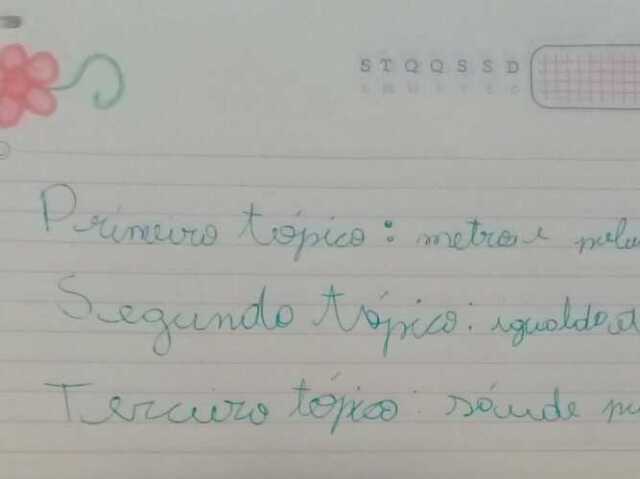 S T Q Q S S D
Primeiro tópico: metrô e
Segundo tópico: igualdad
Terceiro tópico: saúde pú